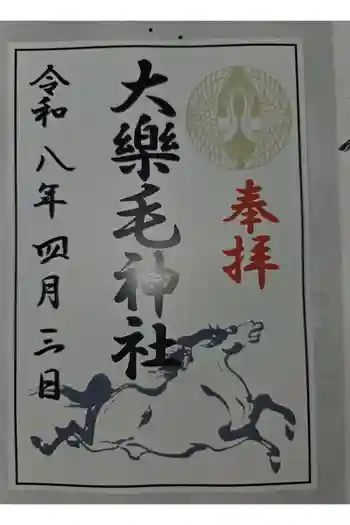 奉拝
大樂毛神社
令和八年四月三日